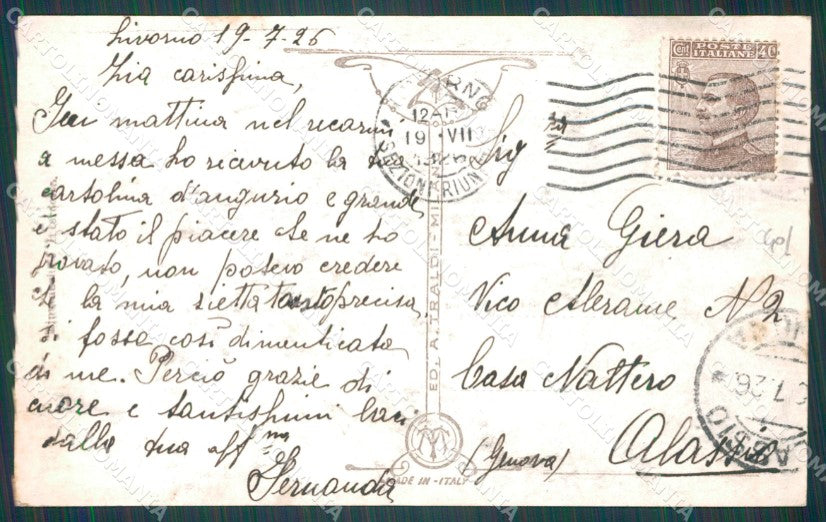 Livorno 19-7-26
Zia carissima,
Ieri mattina nel recarmi
a messa ho ricevuto la tua
cartolina d'augurio e grande
è stato il piacere che ne ho
provato, non potevo credere
che la mia zietta tanto precisa,
si fosse così dimenticata
di me. Perciò grazie di
cuore e tantissimi baci
dalla tua aff.ma
Fernanda
Sig.ra
Anna Giera
Vico Alerame N 2
Casa Nattero
(Genova) Alassio
POSTE ITALIANE
Cent 40
12
19 VII
ED. A. TRALDI - MILANO
MADE IN - ITALY
ALASSIO
7.26
CARTOLINOMANIA